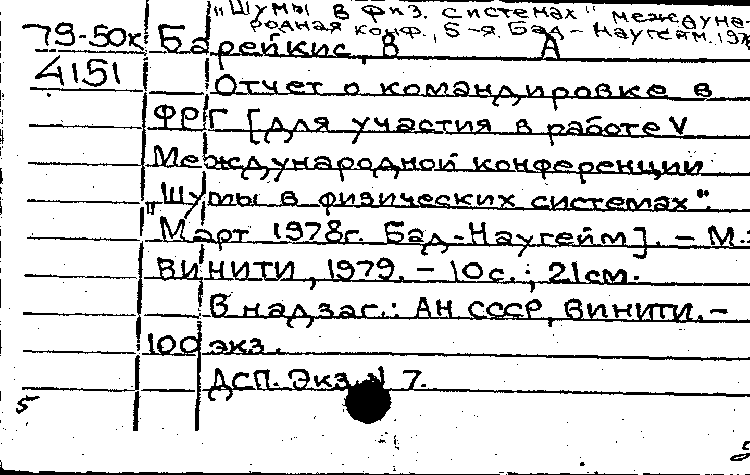 "Шумы в физ. системах" междуна-
родная конф., 5-я. Бад-Наугейм. 197
79-50к Барейкис, В А
4151 Отчет о командировке в
ФРГ [Для участия в работе V
Международной конференции
"Шумы в физических системах".
Март 1978г. Бад-Наугейм]. - М.:
ВИНИТИ, 1979. - 10 с.; 21 см.
В надзаг.: АН СССР, ВИНИТИ. -
100 экз.
ДСП. Экз. N 7.
5
5